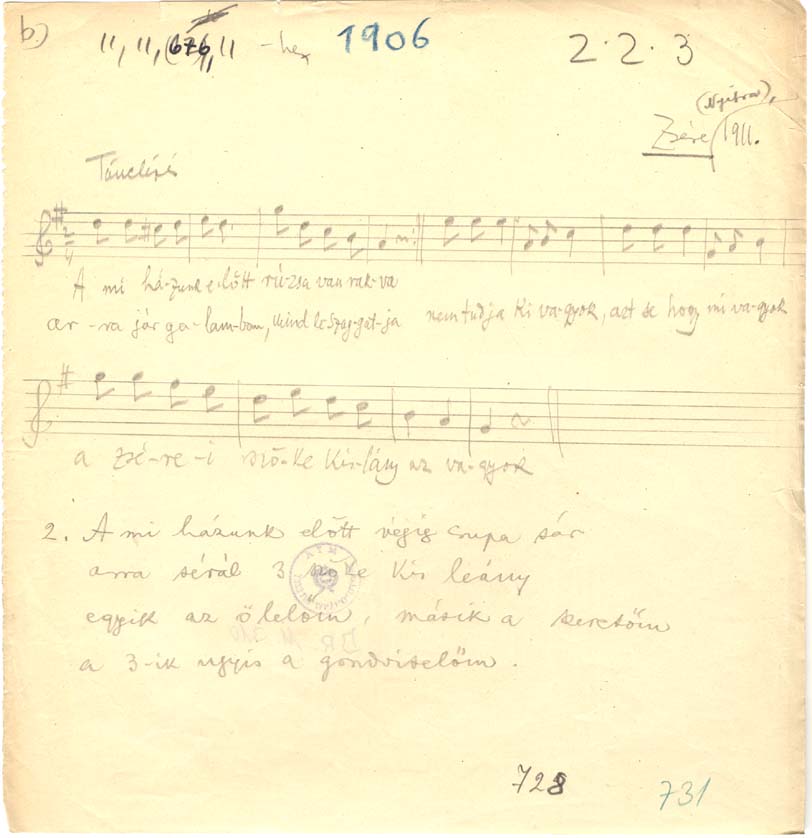 b.)
11, 11, (6+6), 11 - hex 1906 2·2·3
(Nyitra),
Zsére 1911.
Tánclépés
A mi há-zunk e-lőtt rú-zsa van rak-va
ar-ra jár ga-lam-bom, mind le szag-gat-ja nem tudja ki va-gyok, azt se hogy mi va-gyok
a zsé-re-i sző-ke kis-lány az va-gyok
2. A mi házunk előtt végig csupa sár
arra sétál 3 szőke kis leány
egyik az ölelőm, másik a szeretőm
a 3-ik ugyis a gondviselőm.
728
731